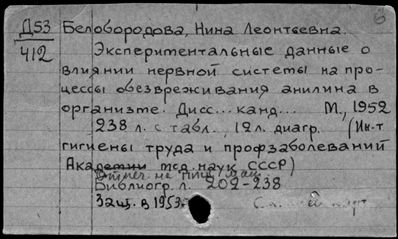 Д53 Белобородова, Нина Леонтьевна.
412 Экспериментальные данные о
влиянии нервной системы на про-
цессы обезвреживания анилина в
организме. Дисс... канд... М., 1952
238 л. с табл., 12 л. диагр. (Ин-т
гигиены труда и профзаболеваний
Академии мед. наук СССР)
Отпеч. на пиш. маш.
Библиогр. л. 202-238
Защ. в 1953